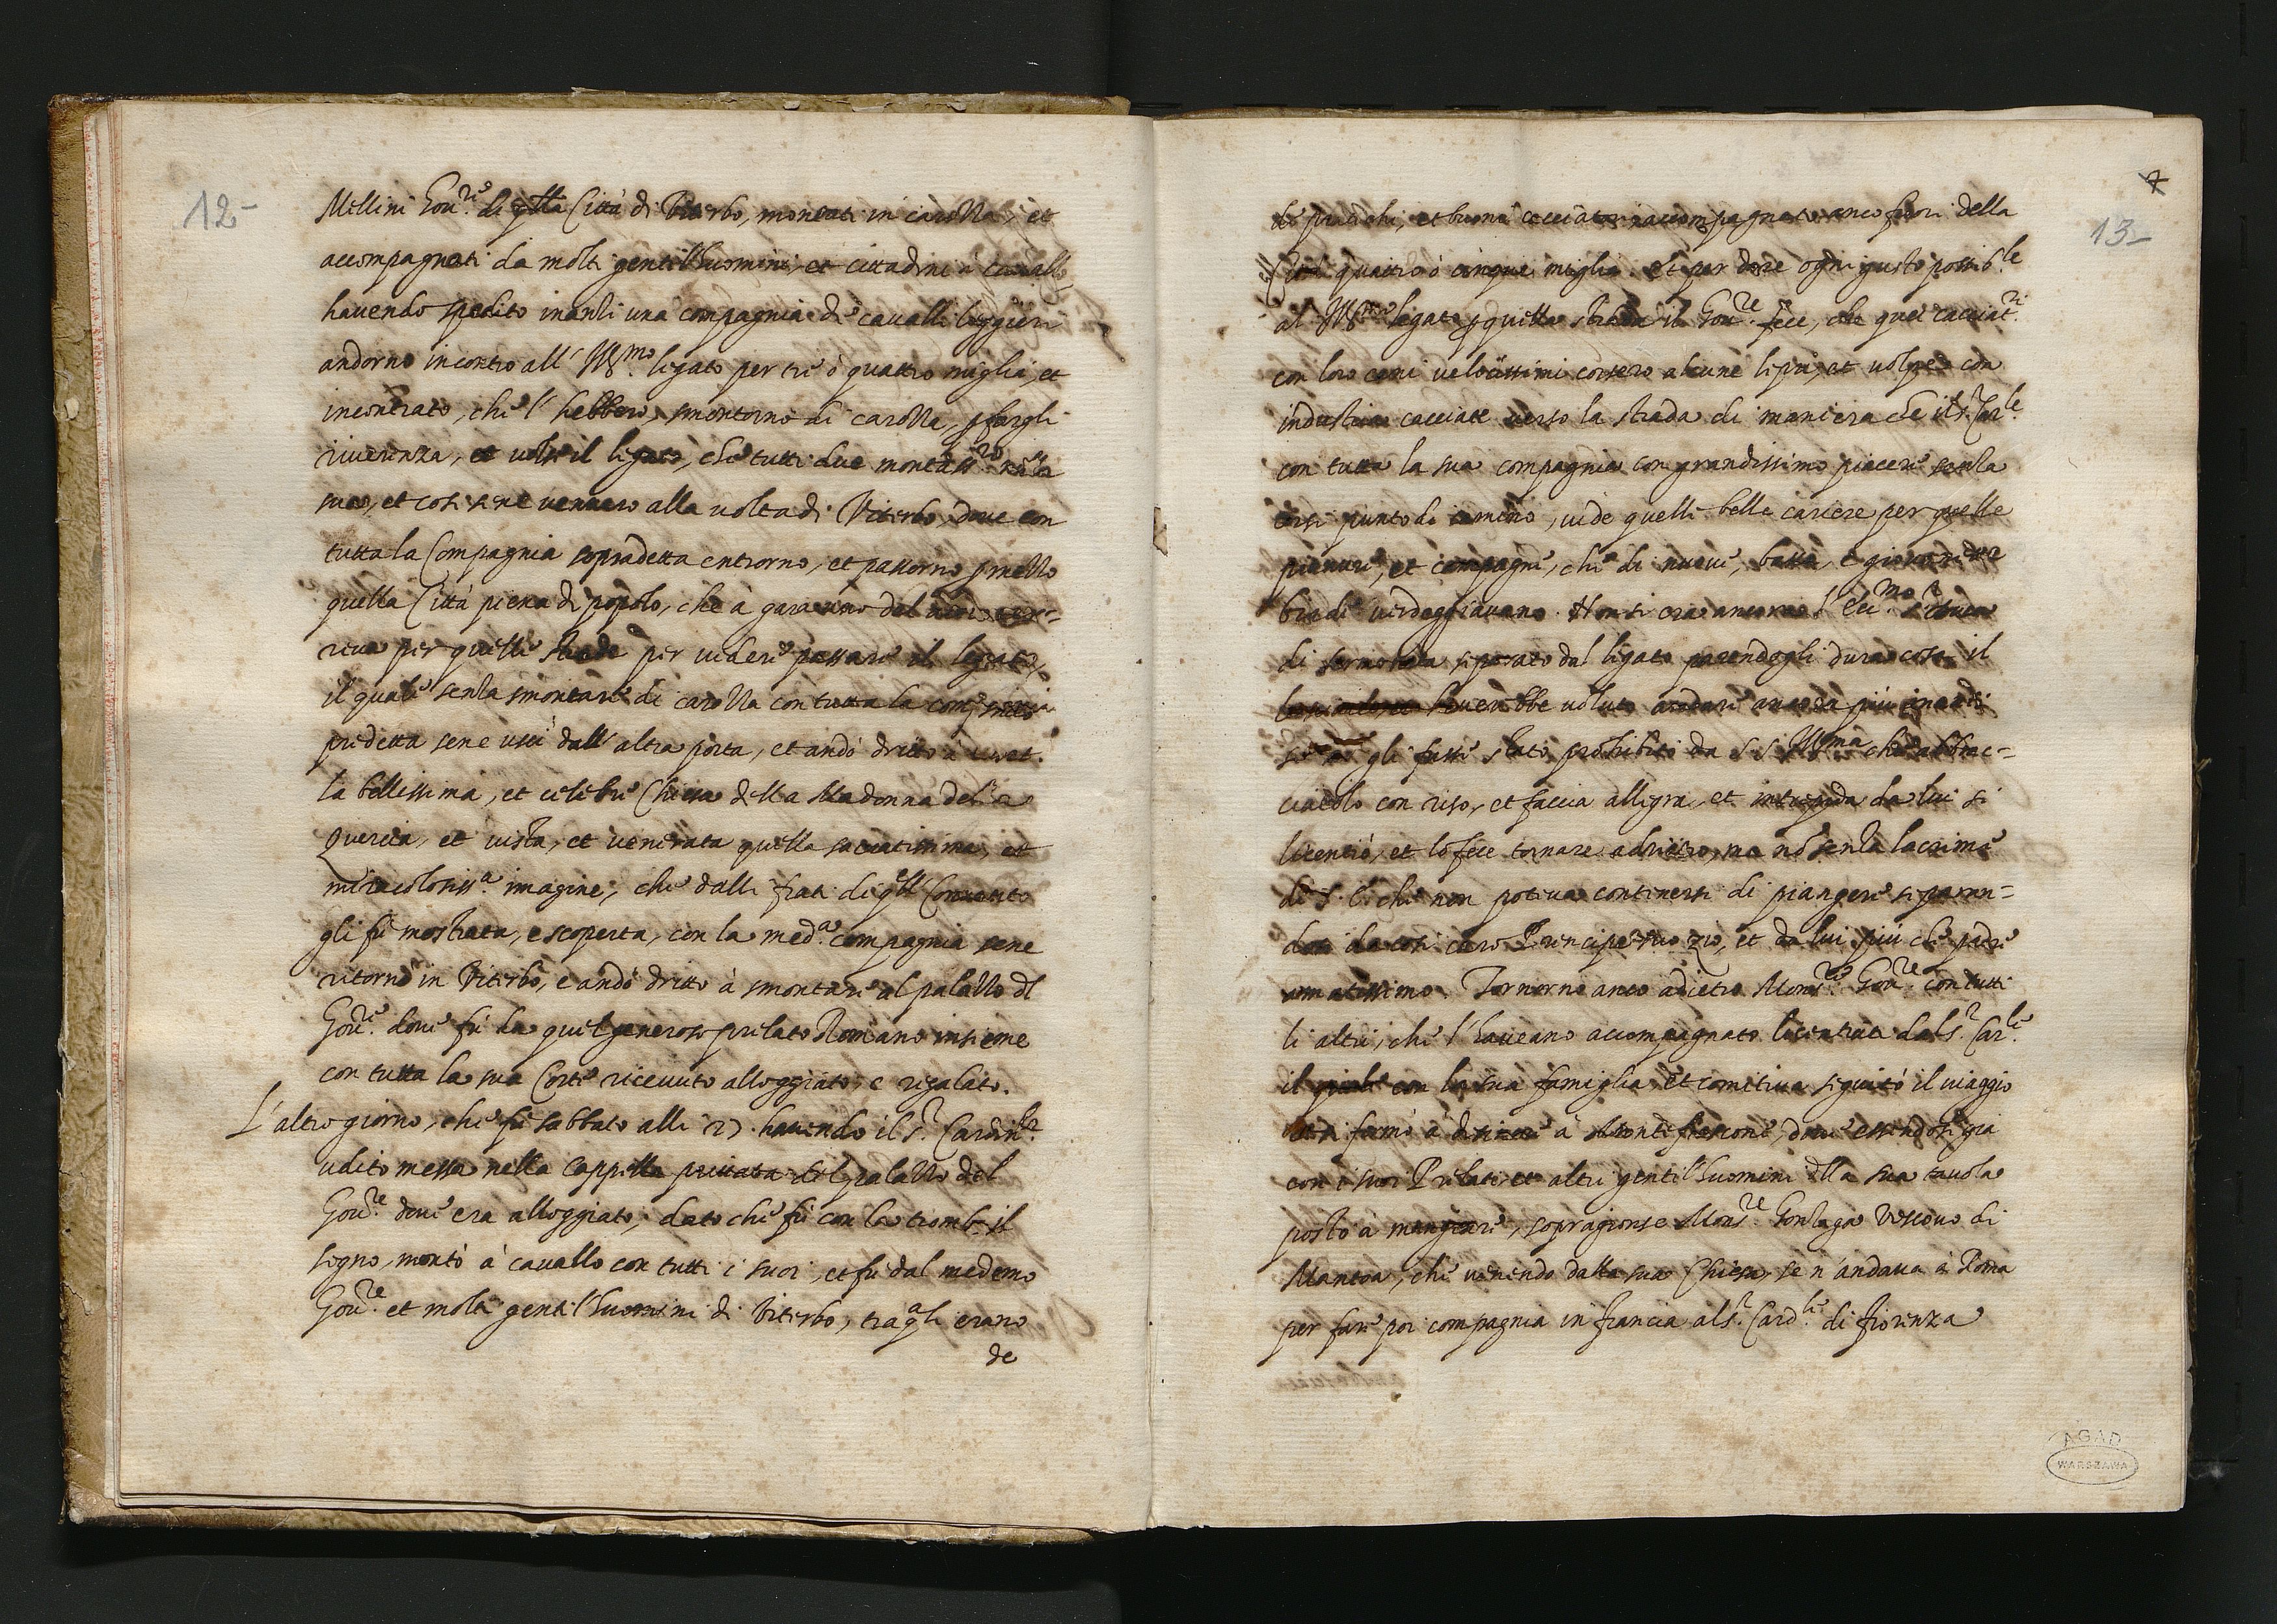 12-
Mellini Gou.re di q.lla Città di Viterbo, montati in carozza, et
accompagnati da molti gentil'huomini, et cittadini à cauallo
hauendo spedito inanzi una compagnia di caualli leggieri
andorno incontro all' Ill.mo legato per tre ò quattro miglia, et
incontrato, che l' hebbero, smontorno di carozza, p fargli
riuerenza, et uolse il legato, che tutti due montass.ro nella
sua, et cosi se ne vennero alla uolta di Viterbo, doue con
tutta la Compagnia sopradetta entrorno, et passorno p mezzo
quella Città piena di popolo, che à gara uno del
reua per quelle strade per uedere passare il legato,
il quale senza smontare di carozza con tutta la compagnia
predetta se ne uscì dall' altra porta, et andò dritto à
la bellissima, et celebre Chiesa della Madonna della
Quercia, et uista, et uenerata quella sacratissima, et
miracolosiss.a imagine, che dalli frati di q.ll Conuento
gli fù mostrata, e scoperta, con la med.a compagnia sene
ritornò in Viterbo, e andò dritto à smontare al palazzo dl
Gou.re doue fù da quel generoso prelato Romano insieme
con tutta la sua Corte riceuuto alloggiato, e regalato.
L'altro giorno, che fù sabbato alli 27. hauendo il s.r Cardin.le
udito messa nella Cappella priuata del palazzo del
Gou.re doue era alloggiato, dato che fù con le trombe il
segno, montò à cauallo con tutti i suoi, et fù dal medemo
Gou.re et molti gentil'huomini di Viterbo, tra q.li erano
de
7
13-
de pratichi, et buoni cacciatori accompagnato anco fuori della
Città quattro ò cinque miglia. et per dare ogni gusto possib.le
al Ill.mo legato p quella strada il Gou.re fece, che quei cacciat.ri
con loro cani uelocissimi corsero alcune lepri, et uolpe con
industria cacciate uerso la strada di maniera che il s.r Car.le
con tutta la sua compagnia con grandissimo piacere senza
torsi punto di camino, uide quelle belle cariere per quelle
pianure, et campagne, che di nuoue, basse, e giouanette
biade uerdeggiauano. Non si era ancora l' Ecc.mo s.r Duca
di Sermoneta separato dal legato parendogli dura cosa il
hauerebbe uoluto andare ancora più inanzi
se no gli fusse stato prohibito da S. S. Ill.ma che abbrac=
ciatolo con riso, et faccia allegra, et intrepida da lui si
licentiò, et lo fece tornare adrietro, ma nõ senza lacrime
di S. E. che non poteua contenersi di piangere separan=
dosi da cosi caro Prencipe suo zio, et da lui più che padre
amatissimo. Tornorno anco adietro Mons.re Gou.re con tutti
li altri, che l'haueano accompagnato licentiati dal s.r Car.le
il quale con la sua famiglia, et comitiua seguitò il uiaggio
et si fermò à desinare à Montefiascone, doue essendosi gia
con i suoi Prelati, et altri gentil'huomini alla sua tauola
posto à mangiare, sopragionse Mons.re Gonzaga Vescouo di
Mantoa, che uenendo dalla sua Chiesa, se n'andaua à Roma
per fare poi compagnia in francia al s.r Card.le di fiorenza
AGAD
WARSZAWA